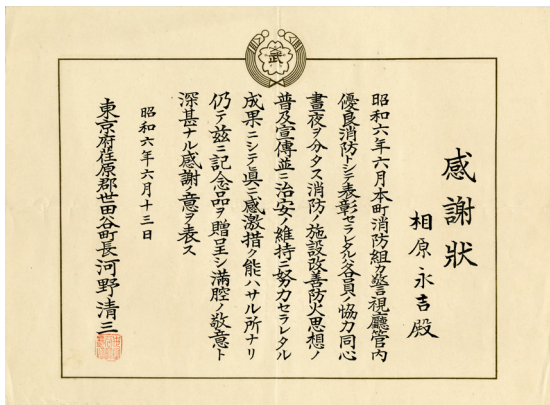 武
感謝狀
相原永吉殿
昭和六年六月本町消防組カ警視廳管内
優良消防トシテ表彰セラレタル各員ノ協力同心
晝夜ヲ分タス消防ノ施設改善防火思想ノ
普及宣傳並ニ治安ノ維持ニ努力セラレタル
成果ニシテ眞ニ感激措ク能ハサル所ナリ
仍テ茲ニ記念品ヲ贈呈シ滿腔ノ敬意ト
深甚ナル感謝ノ意ヲ表ス
昭和六年六月十三日
東京府荏原郡世田谷町長河野清三